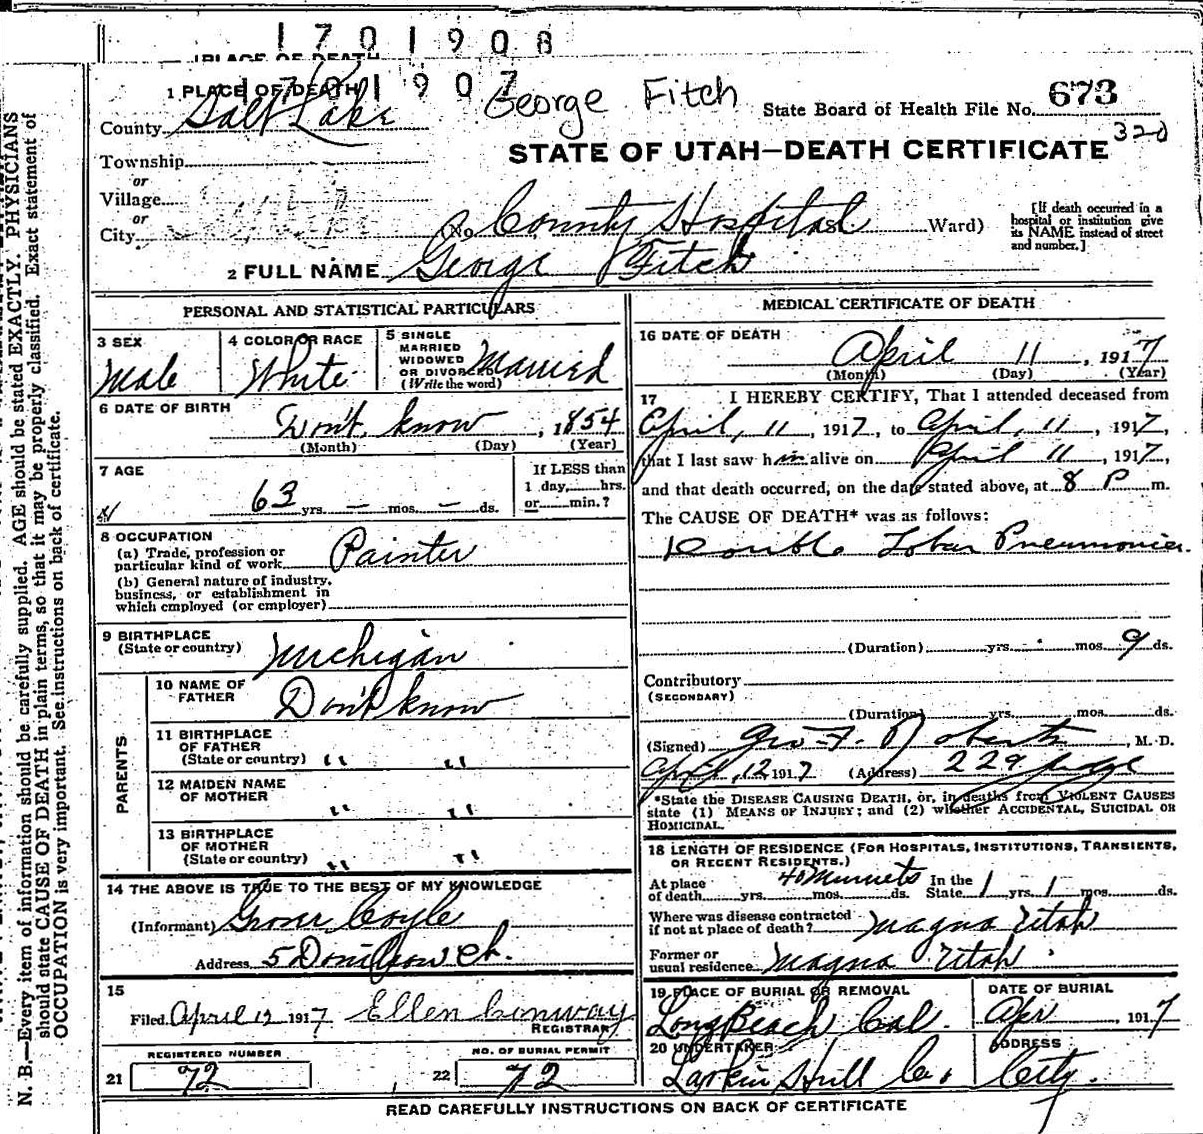 1701908
PLACE OF DEATH
1701907
1 PLACE OF DEATH
George Fitch
State Board of Health File No. 673
320
County Salt Lake
STATE OF UTAH—DEATH CERTIFICATE
Township
or
Village
or
City
(No County Hospital St. Ward)
[If death occurred in a
hospital or institution give
its NAME instead of street
and number.]
2 FULL NAME George Fitch
PERSONAL AND STATISTICAL PARTICULARS
3 SEX
Male
4 COLOR OR RACE
White
5 SINGLE
MARRIED
WIDOWED
OR DIVORCED
(Write the word)
Married
6 DATE OF BIRTH
Don't know, 1854
(Month) (Day) (Year)
7 AGE
63 yrs. — mos. — ds.
If LESS than
1 day, hrs.
or min.?
8 OCCUPATION
(a) Trade, profession or
particular kind of work Painter
(b) General nature of industry,
business, or establishment in
which employed (or employer)
9 BIRTHPLACE
(State or country) Michigan
PARENTS
10 NAME OF
FATHER Don't know
11 BIRTHPLACE
OF FATHER
(State or country) " "
12 MAIDEN NAME
OF MOTHER " "
13 BIRTHPLACE
OF MOTHER
(State or country) " "
14 THE ABOVE IS TRUE TO THE BEST OF MY KNOWLEDGE
(Informant) Grover Coyle
Address 5 Ch.
15
Filed April 12 1917 Ellen Conway
REGISTRAR
REGISTERED NUMBER
21 72
NO. OF BURIAL PERMIT
22 72
MEDICAL CERTIFICATE OF DEATH
16 DATE OF DEATH
April 11, 1917
(Month) (Day) (Year)
17 I HEREBY CERTIFY, That I attended deceased from
April, 11, 1917, to April, 11, 1917,
that I last saw him alive on April 11, 1917,
and that death occurred, on the date stated above, at 8 P m.
The CAUSE OF DEATH* was as follows:
Double Lobar Pneumonia.
(Duration) yrs. mos. 9 ds.
Contributory
(SECONDARY)
(Duration) yrs. mos. ds.
(Signed) Geo. F. Roberts, M. D.
April, 12 1917 (Address) 229 Judge
*State the DISEASE CAUSING DEATH, or, in deaths from VIOLENT CAUSES
state (1) MEANS OF INJURY; and (2) whether ACCIDENTAL, SUICIDAL OR
HOMICIDAL.
18 LENGTH OF RESIDENCE (FOR HOSPITALS, INSTITUTIONS, TRANSIENTS,
OR RECENT RESIDENTS.)
At place
of death yrs. mos. ds. 40 Minuets In the
State 1 yrs. 1 mos. ds.
Where was disease contracted
if not at place of death? Magna Utah
Former or
usual residence Magna Utah
19 PLACE OF BURIAL OR REMOVAL
Long Beach Cal.
DATE OF BURIAL
Apr 1917
20 UNDERTAKER
Larkin Hull Co.
ADDRESS
City.
READ CAREFULLY INSTRUCTIONS ON BACK OF CERTIFICATE
N. B.—Every item of information should be carefully supplied. AGE should be stated EXACTLY. PHYSICIANS
should state CAUSE OF DEATH in plain terms, so that it may be properly classified. Exact statement of
OCCUPATION is very important. See instructions on back of certificate.